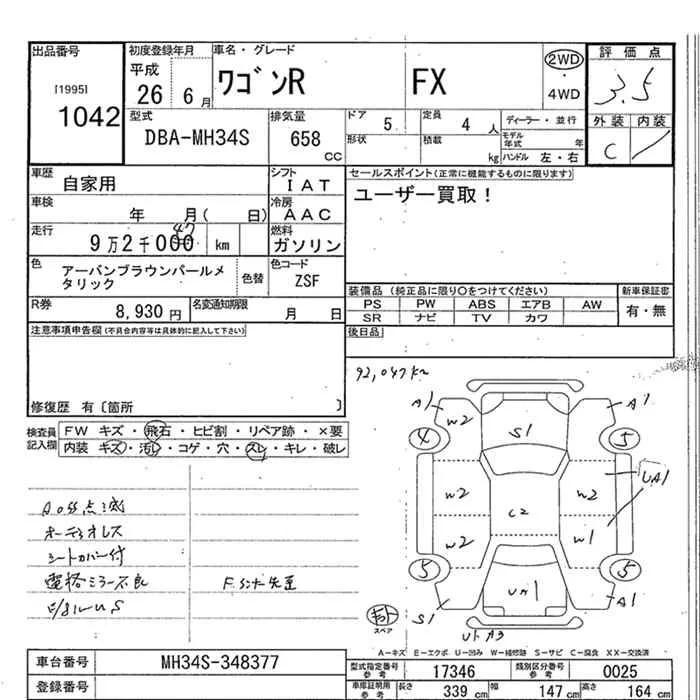 出品番号
[1995]
1042
初度登録年月
平成
26 6月
車名・グレード
ワゴンR FX
2WD
・
4WD
評価点
3.5
外装 内装
C
型式
DBA-MH34S
排気量
658 CC
ドア 5
定員 4 人
形状
積載 kg
ディーラー・並行
モデル年式 年
ハンドル 左・右
車歴
自家用
シフト
IAT
車検
年 月( 日)
冷房
AAC
走行
9万2千000 km
47
燃料
ガソリン
色
アーバンブラウンパールメタリック
色替
色コード
ZSF
R券
8,930円
名変通知期限
月 日
セールスポイント(正常に機能するものに限ります)
ユーザー買取!
装備品(純正品に限り○をつけてください)
新車保証書
PS PW ABS エアB AW
有・無
SR ナビ TV カワ
後日品
注意事項申告欄(不具合内容等は具体的に記入して下さい)
修復歴 有〔箇所 〕
検査員
記入欄
FW キズ・飛石・ヒビ割・リペア跡・×要
内装 キズ・汚れ・コゲ・穴・スレ・キレ・破レ
92,047km
A1 A1
W2
S1
4 5
UA1
W2 W2
C2
W2 W1
5 5
UA1
S1 A1
スペア
U1 A3
オーディオレス
シートカバー付
電格ミラー不良
A-キズ E-エクボ U-凹み W-補修跡 S-サビ C-腐食 XX-交換済
車台番号
MH34S-348377
登録番号
型式指定番号
参考
17346
類別区分番号
参考
0025
車庫証明用
参考
長さ 339 cm
幅 147 cm
高さ 164 cm